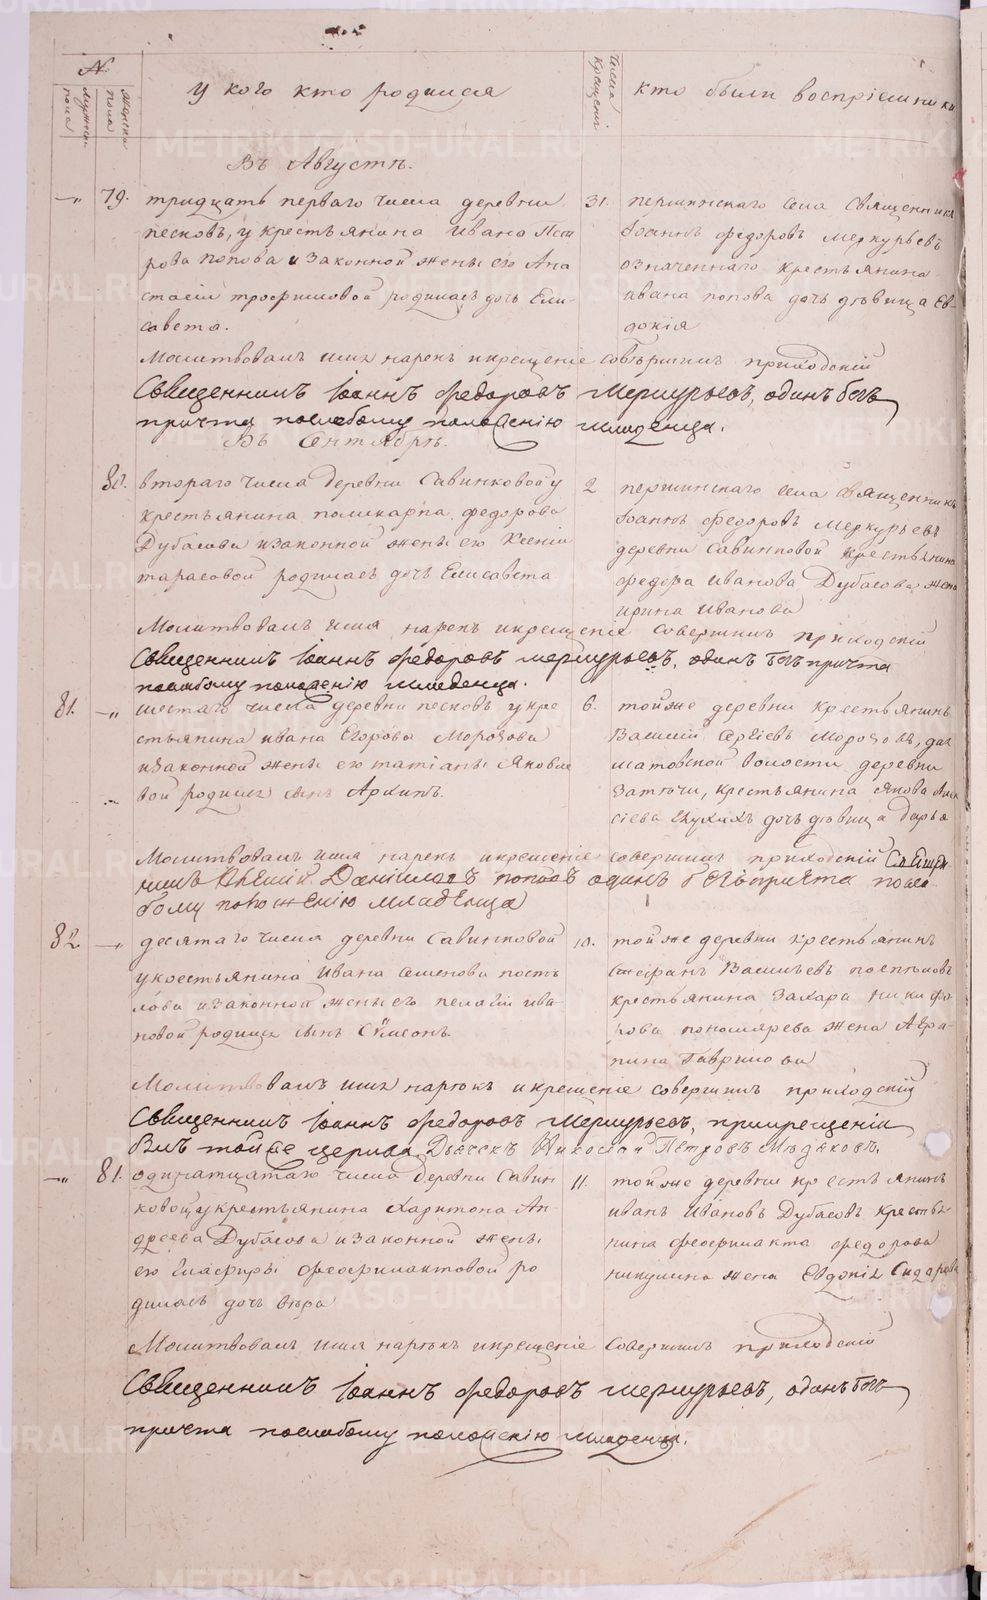 №
мужеска пола
женска пола
у кого кто родился
числа крещенія
кто были воспріемники
Въ Августѣ.
79. тридцать перваго числа деревни
песковъ, у крестьянина Ивана Пет
рова Попова и законной жены его Ана
стасіи трофимовой родилась дочь Ели-
савета.
31. першинскаго села священникъ
Іоаннъ федоровъ Меркурьевъ
означеннаго крестьянина
ивана попова дочь дѣвица Ев-
докія
Молитвовалъ имя нарекъ и крещеніе совѣршилъ приходскій
Священникъ Іоаннъ Федоровъ Меркурьевъ, одинъ безъ
причта по слабому положенію младенца.
Въ Сентябрѣ.
80. втораго числа деревни Савинковой у
крестьянина поликарпа федорова
Дубасова и законной жены его Ксеніи
тарасовой родилась дочь Елисавета
2 першинскаго села священникъ
Іоаннъ федоровъ Меркурьевъ
деревни Савинковой крестьянина
федора Иванова Дубасова жена
ирина Иванова
Молитвовалъ имя нарекъ и крещеніе совершилъ приходскій
Священникъ Іоаннъ Федоровъ Меркурьевъ, одинъ безъ причта
по слабому положенію младенца.
81. шестаго числа деревни песковъ у кре
стьянина ивана Егорова Морозова
и законной жены его татіаны Яковле
вой родился сынъ Архипъ.
6. тойже деревни крестьянинъ
Василій Сергіевъ Морозовъ, дал
матовской волости деревни
Затечи, крестьянина Якова Алек
сіева дочь дѣвица Дарья
Молитвовалъ имя нарекъ и крещеніе совершилъ приходскій Священ
никъ Даніиловъ поповъ одинъ безъ причта по сла
бому положѣнію младѣнца
82. десятаго числа деревни Савинковой
у крестьянина Ивана Семенова посты
лова и законной жены его пелагіи ива
новой родился сынъ Сѵмеонъ.
10. тойже деревни крестьянинъ
Стефанъ Васильевъ поспѣловъ
крестьянина Захара никифо-
рова пономарева жена Агра-
пина Гаврилова
Молитвовалъ имя нарѣкъ и крещеніе совершилъ приходскій
Священникъ Іоаннъ Федоровъ Меркурьевъ, при крещеніи
былъ той же церкви Дьячекъ Николай Пѣтровъ
81. одинатцатаго числа деревни Савин
ковой у крестьянина Харитона Ан-
дреева Дубасова и законной жены
его Гласфиры феофилактовой ро
дилась дочь вѣра
11. тойже деревни крестьянинъ
иванъ Ивановъ Дубасовъ крестья-
нина феофилакта федорова
никулина жена Евдокія Сидарова
Молитвовалъ имя нарѣкъ и крещеніе совершилъ приходскій
Священникъ Іоаннъ Федоровъ Меркурьевъ, одинъ безъ
причта по слабому положенію младенца.